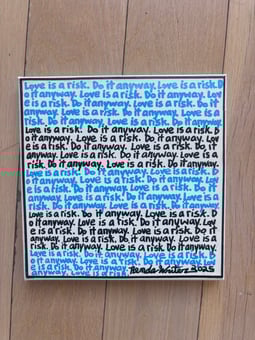 Love is a risk. Do it anyway. Love is a risk. D
o it anyway. Love is a risk. Do it anyway. Lov
e is a risk. Do it anyway. Love is a risk. Do it
anyway. Love is a risk. Do it anyway. Love is a
risk. Do it anyway. Love is a risk. Do it anyway.
Love is a risk. Do it anyway. Love is a risk. D
o it anyway. Love is a risk. Do it anyway. Lov
e is a risk. Do it anyway. Love is a risk. Do it
anyway. Love is a risk. Do it anyway. Love is a
risk. Do it anyway. Love is a risk. Do it anyway.
Love is a risk. Do it anyway. Love is a risk. D
o it anyway. Love is a risk. Do it anyway. Lov
e is a risk. Do it anyway. Love is a risk. Do it
anyway. Love is a risk. Do it anyway. Love is a
risk. Do it anyway. Love is a risk. Do it anyway.
Love is a risk. Do it anyway. Love is a risk. D
o it anyway. Love is a risk. Do it anyway. Lov
e is a risk. Do it anyway. Love is a risk. Do it
anyway. Love is a risk. Do it anyway. Love is a
risk. Do it anyway. Love is a risk. Do it anyway.
Love is a risk. Do it anyway. Love is a risk.
o it anyway. Love is a risk. Do it anyway. Lov
e is a risk. Do it anyway. 2025